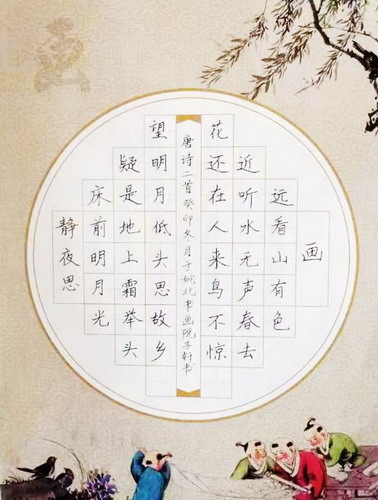 画
远看山有色
近听水无声春去
花还在人来鸟不惊
静夜思
床前明月光
疑是地上霜举头
望明月低头思故乡
唐诗二首癸卯冬月于姚北书画院子轩书